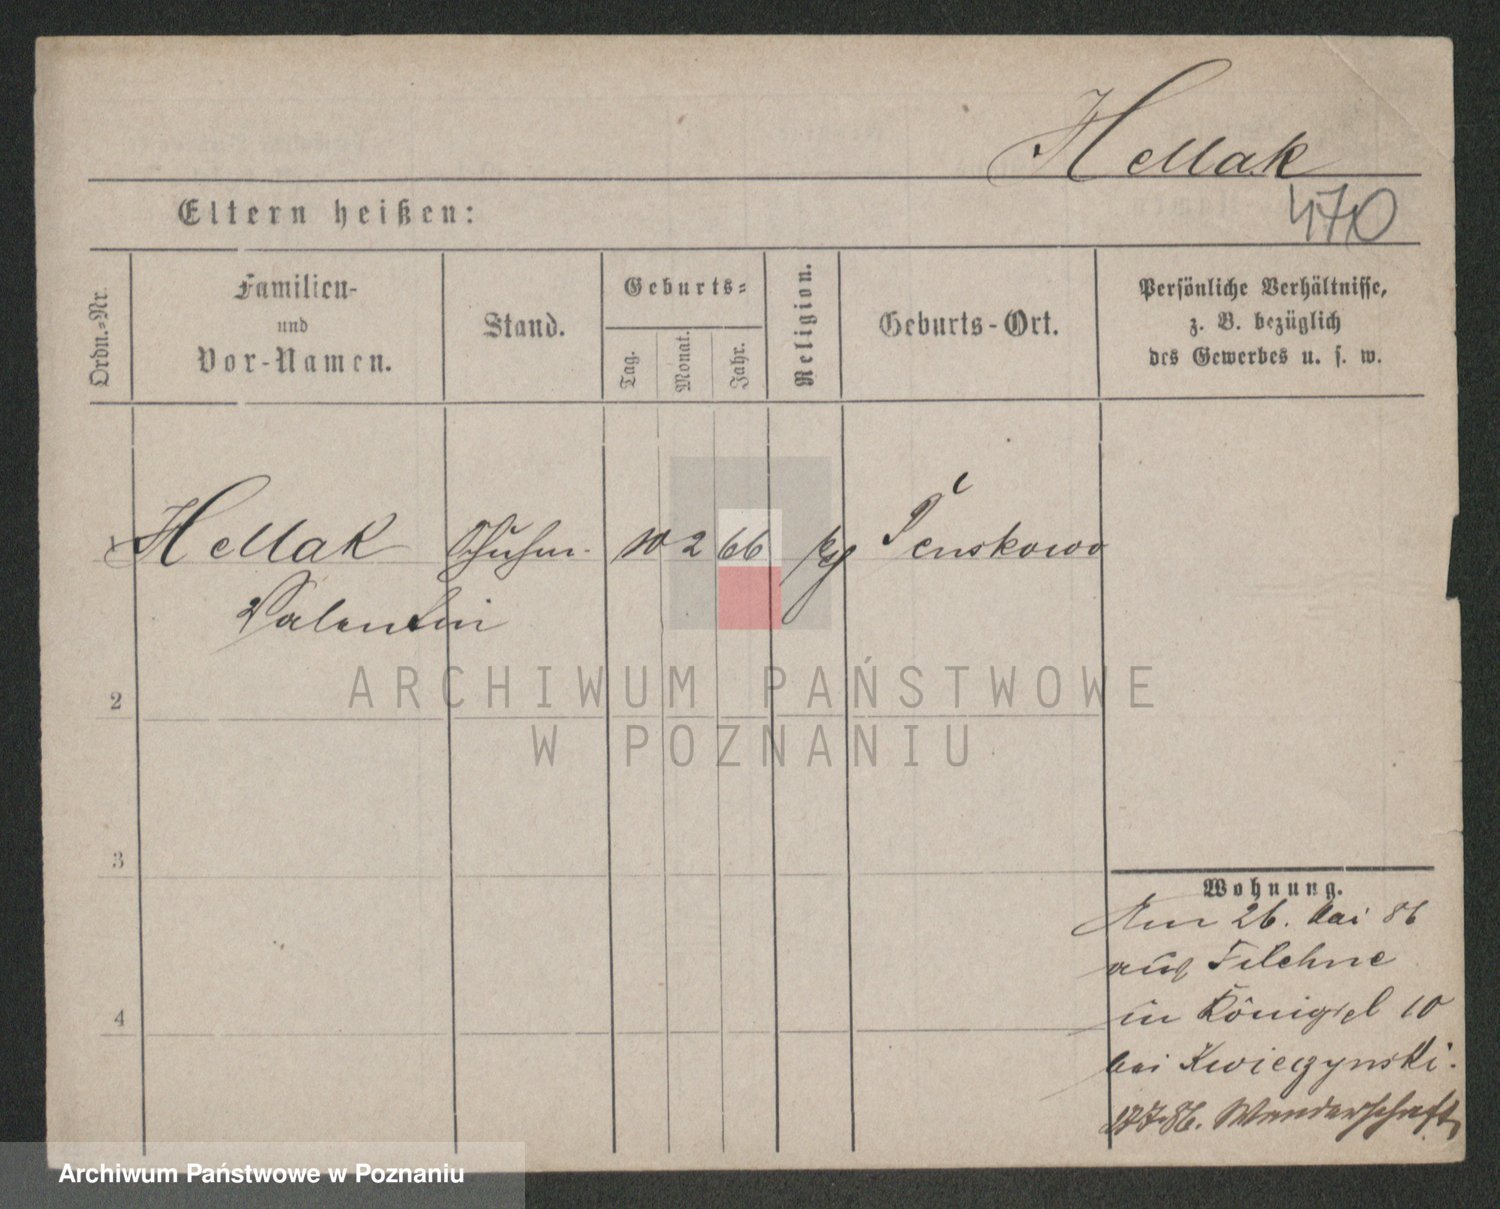 Hellak
470
Eltern heißen:
Ordn.-Nr.
Familien-
und
Vor-Namen.
Stand.
Geburts-
Tag.
Monat.
Jahr.
Religion.
Geburts-Ort.
Persönliche Verhältnisse,
z. B. bezüglich
des Gewerbes u. s. w.
1 Hellak Schuhm. 10 2 66 kg
Valentin
2
3
4
ARCHIWUM PAŃSTWOWE
W POZNANIU
Wohnung.
Am 26. Mai 86
aus Filehne
in Königstr 10
bei Kwieczynski.
86. Wanderschaft
Archiwum Państwowe w Poznaniu